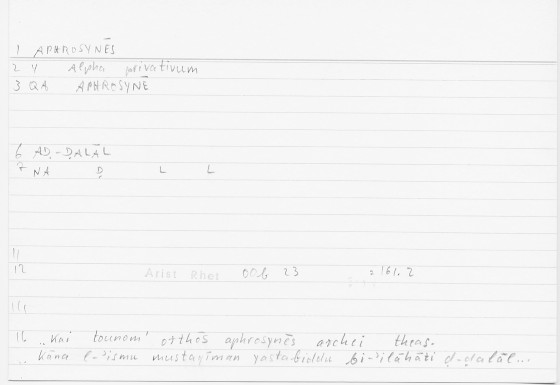 1 APHROSYNĒS
2 Y Alpha privativum
3 QA APHROSYNĒ
6 AḌ-ḌALĀL
7 NA Ḍ L L
11
12 Arist Rhet 006 23 = 161.2
14
16 „kai tounom' orthōs aphrosynēs archei theas.
„kāna l-ʾismu mustaqīman yastabiddu bi-ʾilāhāti ḍ-ḍalāl...